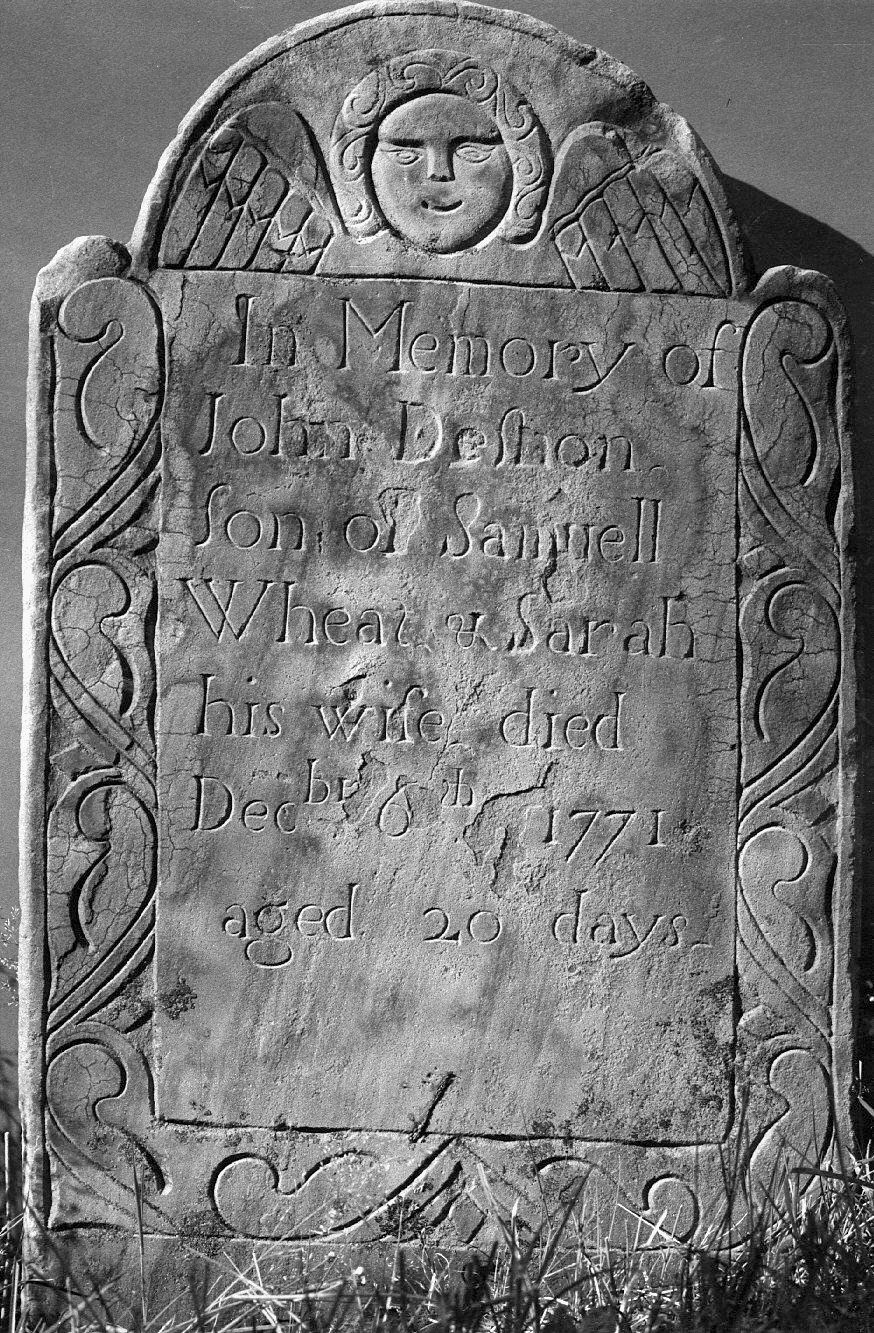 In Memory of
John Deſnon
Son of Samuell
Wheat & Sarah
his wife died
Decbr 6th 1771
aged 20 days